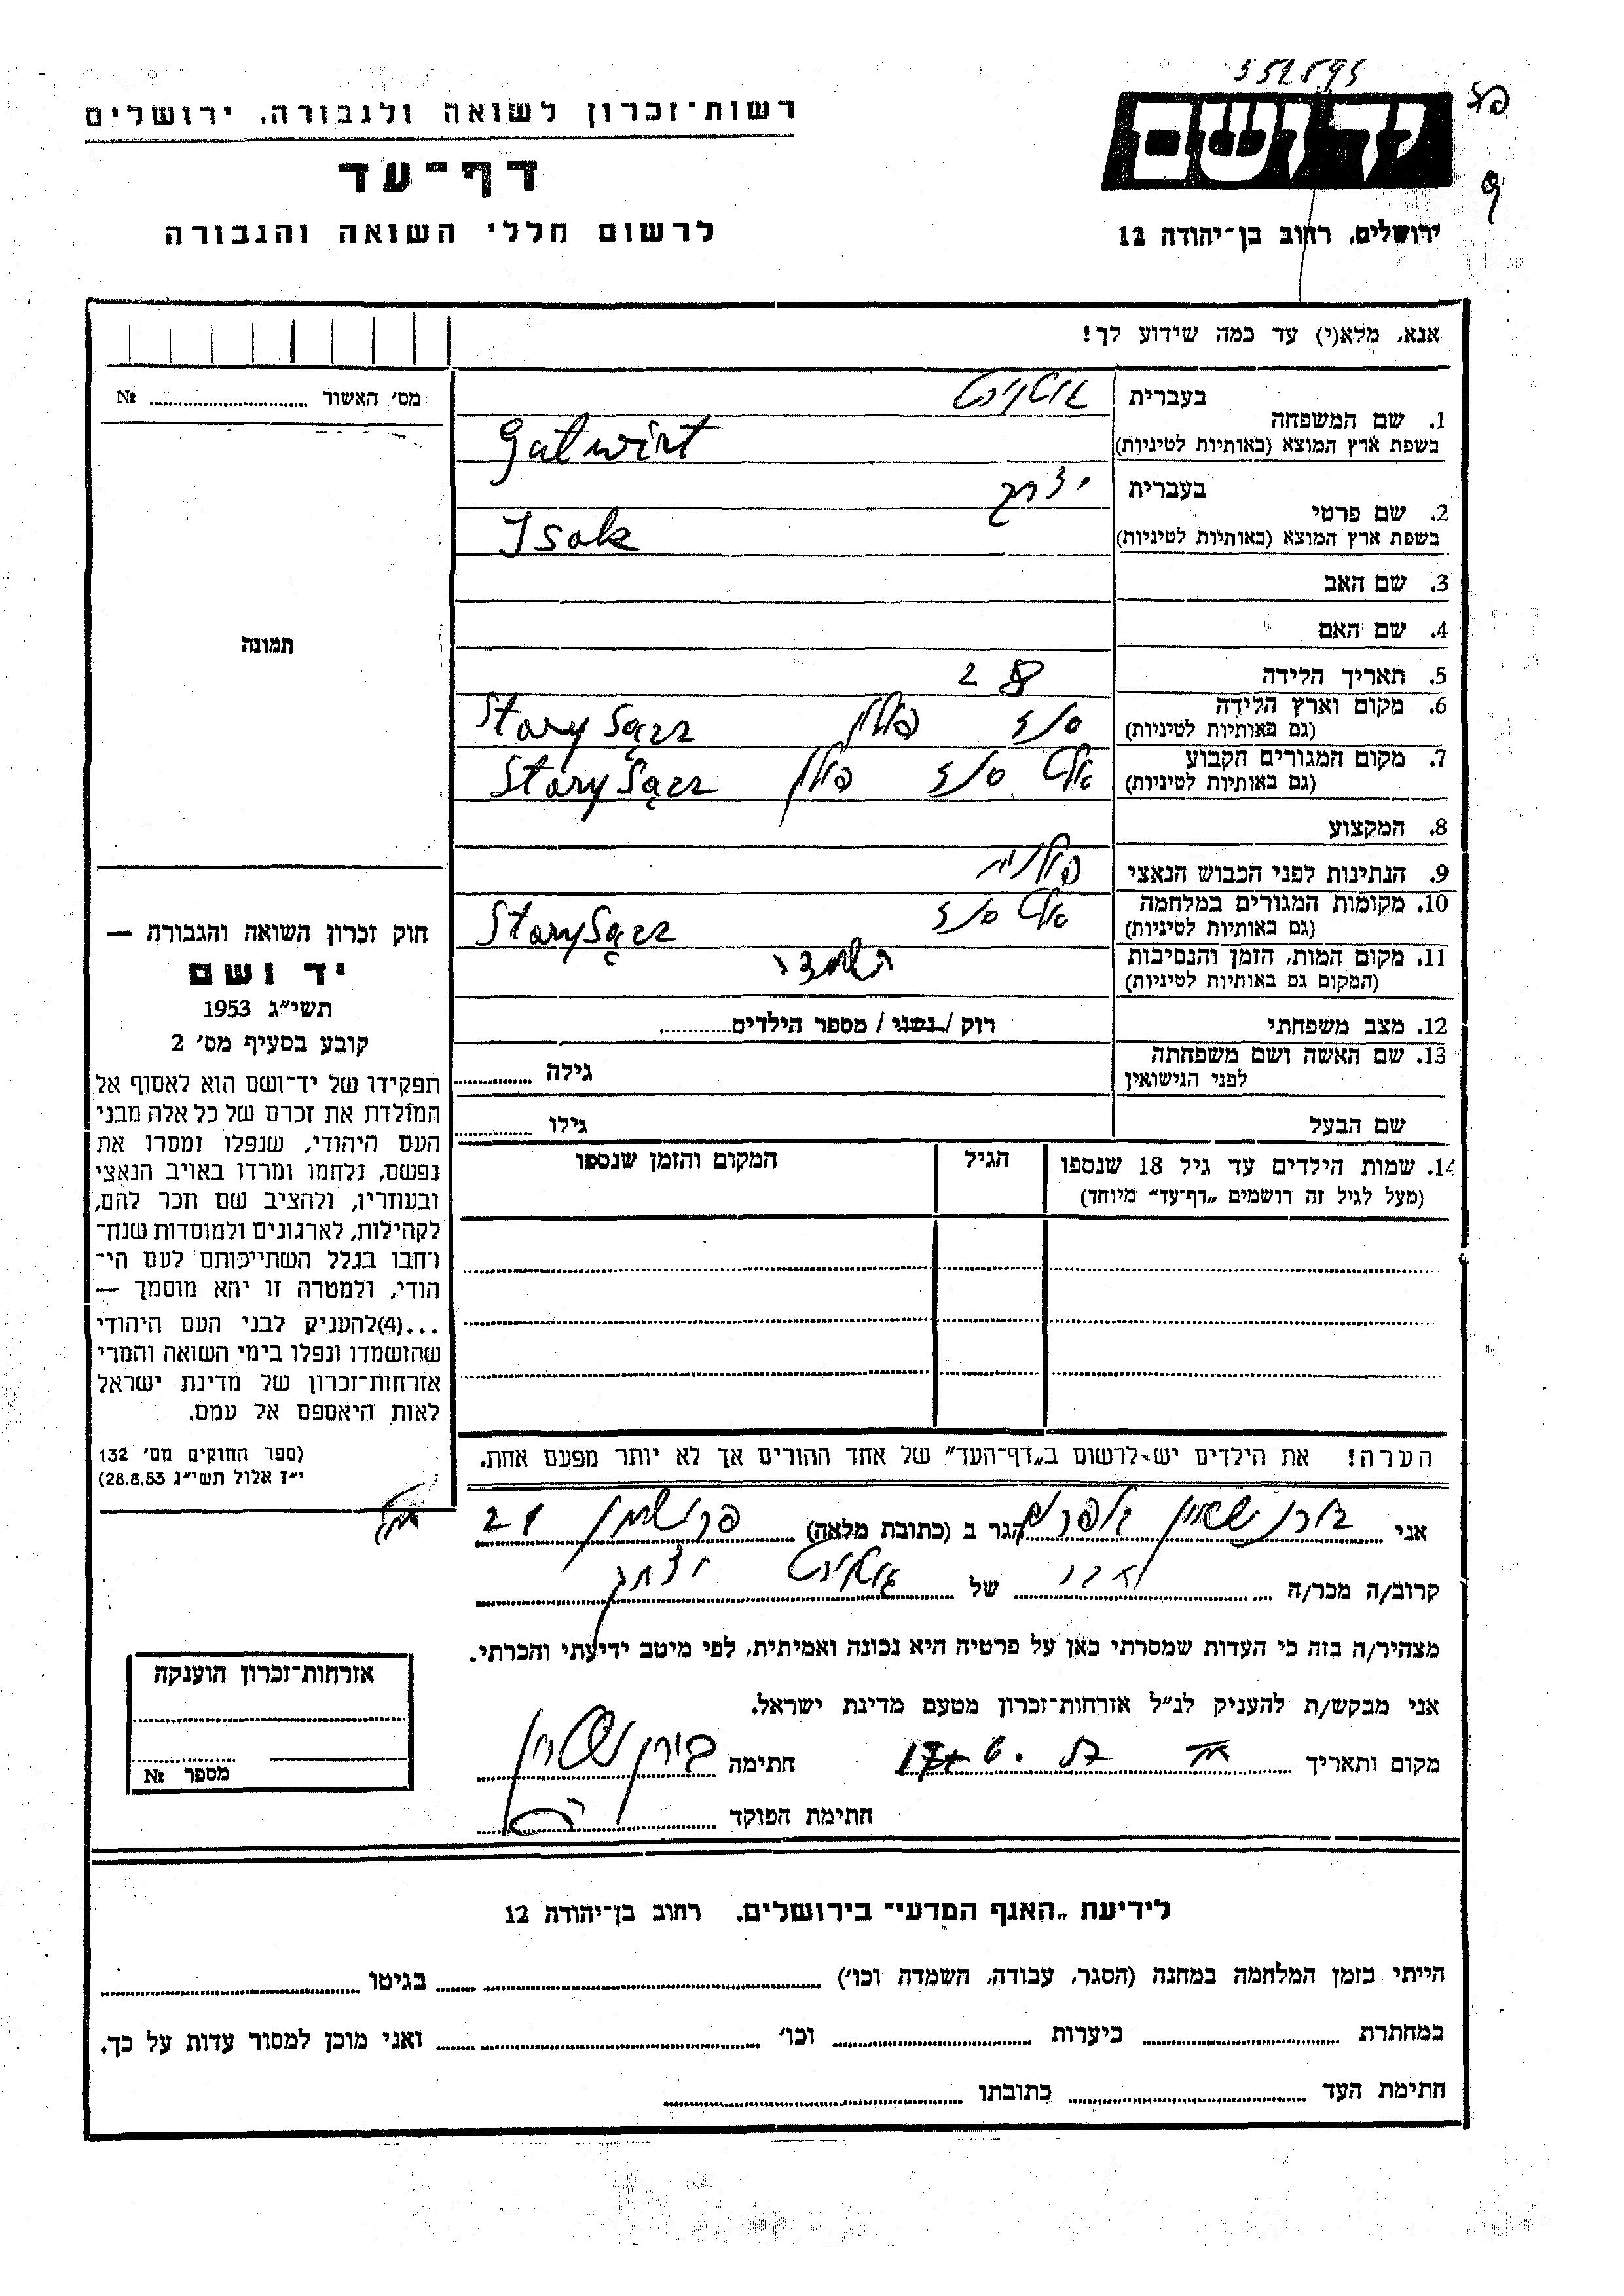 רשות־זכרון לשואה ולגבורה, ירושלים
דף־עד
לרשום חללי השואה והגבורה
ירושלים, רחוב בן־יהודה 12
אנא, מלא(י) עד כמה שידוע לך!
מס׳ האשור № 
בעברית
1. שם המשפחה
בשפת ארץ המוצא (באותיות לטיניות) Gutwirt
בעברית יצחק
2. שם פרטי
בשפת ארץ המוצא (באותיות לטיניות) Isak
3. שם האב
4. שם האם
תמונה
5. תאריך הלידה
6. מקום וארץ הלידה פולין Stary Sącz
(גם באותיות לטיניות)
7. מקום המגורים הקבוע פולין Stary Sącz
(גם באותיות לטיניות)
8. המקצוע
9. הנתינות לפני הכבוש הנאצי פולנית
10. מקומות המגורים במלחמה Stary Sącz
(גם באותיות לטיניות)
11. מקום המות, הזמן והנסיבות
(המקום גם באותיות לטיניות)
12. מצב משפחתי רוק / נשוי / מספר הילדים
13. שם האשה ושם משפחתה גילה
לפני הנישואין
שם הבעל גילו
14. שמות הילדים עד גיל 18 שנספו הגיל המקום והזמן שנספו
(מעל לגיל זה רושמים „דף־עד״ מיוחד)
חוק זכרון השואה והגבורה —
יד ושם
תשי״ג 1953
קובע בסעיף מס׳ 2
תפקידו של יד־ושם הוא לאסוף אל
המולדת את זכרם של כל אלה מבני
העם היהודי, שנפלו ומסרו את
נפשם, נלחמו ומרדו באויב הנאצי
ובעוזריו, ולהציב שם וזכר להם,
לקהילות, לארגונים ולמוסדות שנח־
רבו בגלל השתייכותם לעם הי־
הודי, ולמטרה זו יהא מוסמך —
...(4)להעניק לבני העם היהודי
שהושמדו ונפלו בימי השואה והמרי
אזרחות־זכרון של מדינת ישראל
לאות היאספם אל עמם.
(ספר החוקים מס׳ 132
י״ז אלול תשי״ג 28.8.53)
הערה! את הילדים יש לרשום ב„דף־העד״ של אחד ההורים אך לא יותר מפעם אחת.
אני הגר ב (כתובת מלאה)
קרוב/ה מכר/ה של יצחק
מצהיר/ה בזה כי העדות שמסרתי כאן על פרטיה היא נכונה ואמיתית, לפי מיטב ידיעתי והכרתי.
אני מבקש/ת להעניק לנ״ל אזרחות־זכרון מטעם מדינת ישראל.
מקום ותאריך חתימה
חתימת הפוקד
אזרחות־זכרון הוענקה
מספר №
לידיעת „האגף המדעי״ בירושלים. רחוב בן־יהודה 12
הייתי בזמן המלחמה במחנה (הסגר, עבודה, השמדה וכו׳) בגיטו
במחתרת ביערות וכו׳ ואני מוכן למסור עדות על כך.
חתימת העד כתובתו